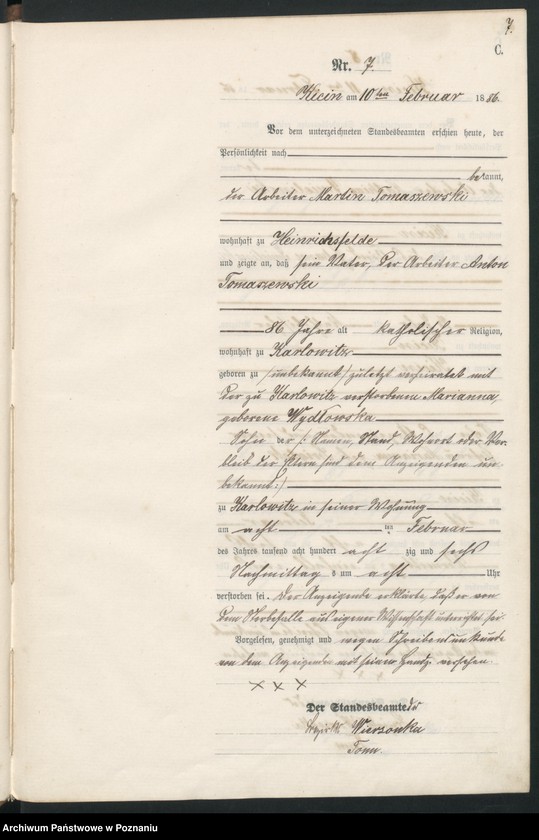 7.
C.
Nr. 7.
Kicin am 10ten Februar 1886.
Vor dem unterzeichneten Standesbeamten erschien heute, der
Persönlichkeit nach
bekannt,
der Arbeiter Martin Tomaszewski
wohnhaft zu Heinrichsfelde
und zeigte an, daß sein Vater, der Arbeiter Anton
Tomaszewski
86 Jahre alt katholischer Religion,
wohnhaft zu Karlowitz
geboren zu (unbekannt) zuletzt verheiratet mit
der zu Karlowitz verstorbenen Marianna,
geborene Wydlowska
Sohn der /: Namen, Stand, Wohnort oder Ver-
bleib der Eltern sind dem Anzeigenden un-
bekannt :/
zu Karlowitz in seiner Wohnung
am acht ten Februar
des Jahres tausend acht hundert acht zig und sechs
Nachmittag s um acht Uhr
verstorben sei. Der Anzeigende erklärte, daß er von
dem Sterbefalle aus eigener Wissenschaft unterrichtet sei.
Vorgelesen, genehmigt und wegen Schreibensunkunde
von dem Anzeigenden mit seinem Handz. versehen.
× × ×
Der Standesbeamte des
Bezirks Wierzonka
Archiwum Państwowe w Poznaniu